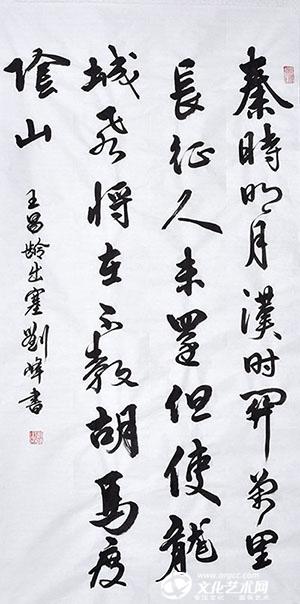 秦時明月漢时関萬里
長征人未還但使龍
城飛將在不教胡馬度
陰山
王昌龄出塞劉峰書
文化艺术网
www.orgcc.com